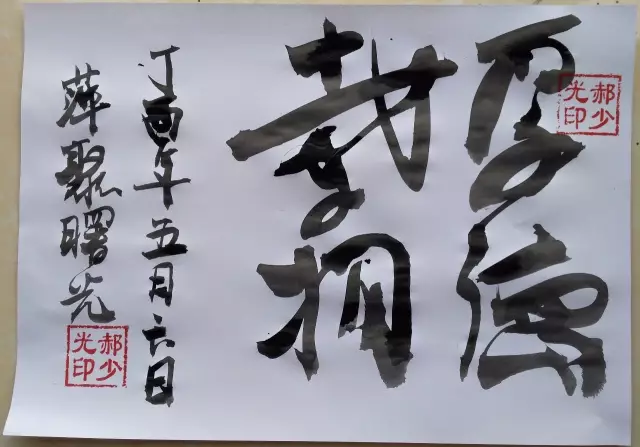 厚德
载物
丁酉年五月六日
萍聚曙光
郝少光印
郝少光印